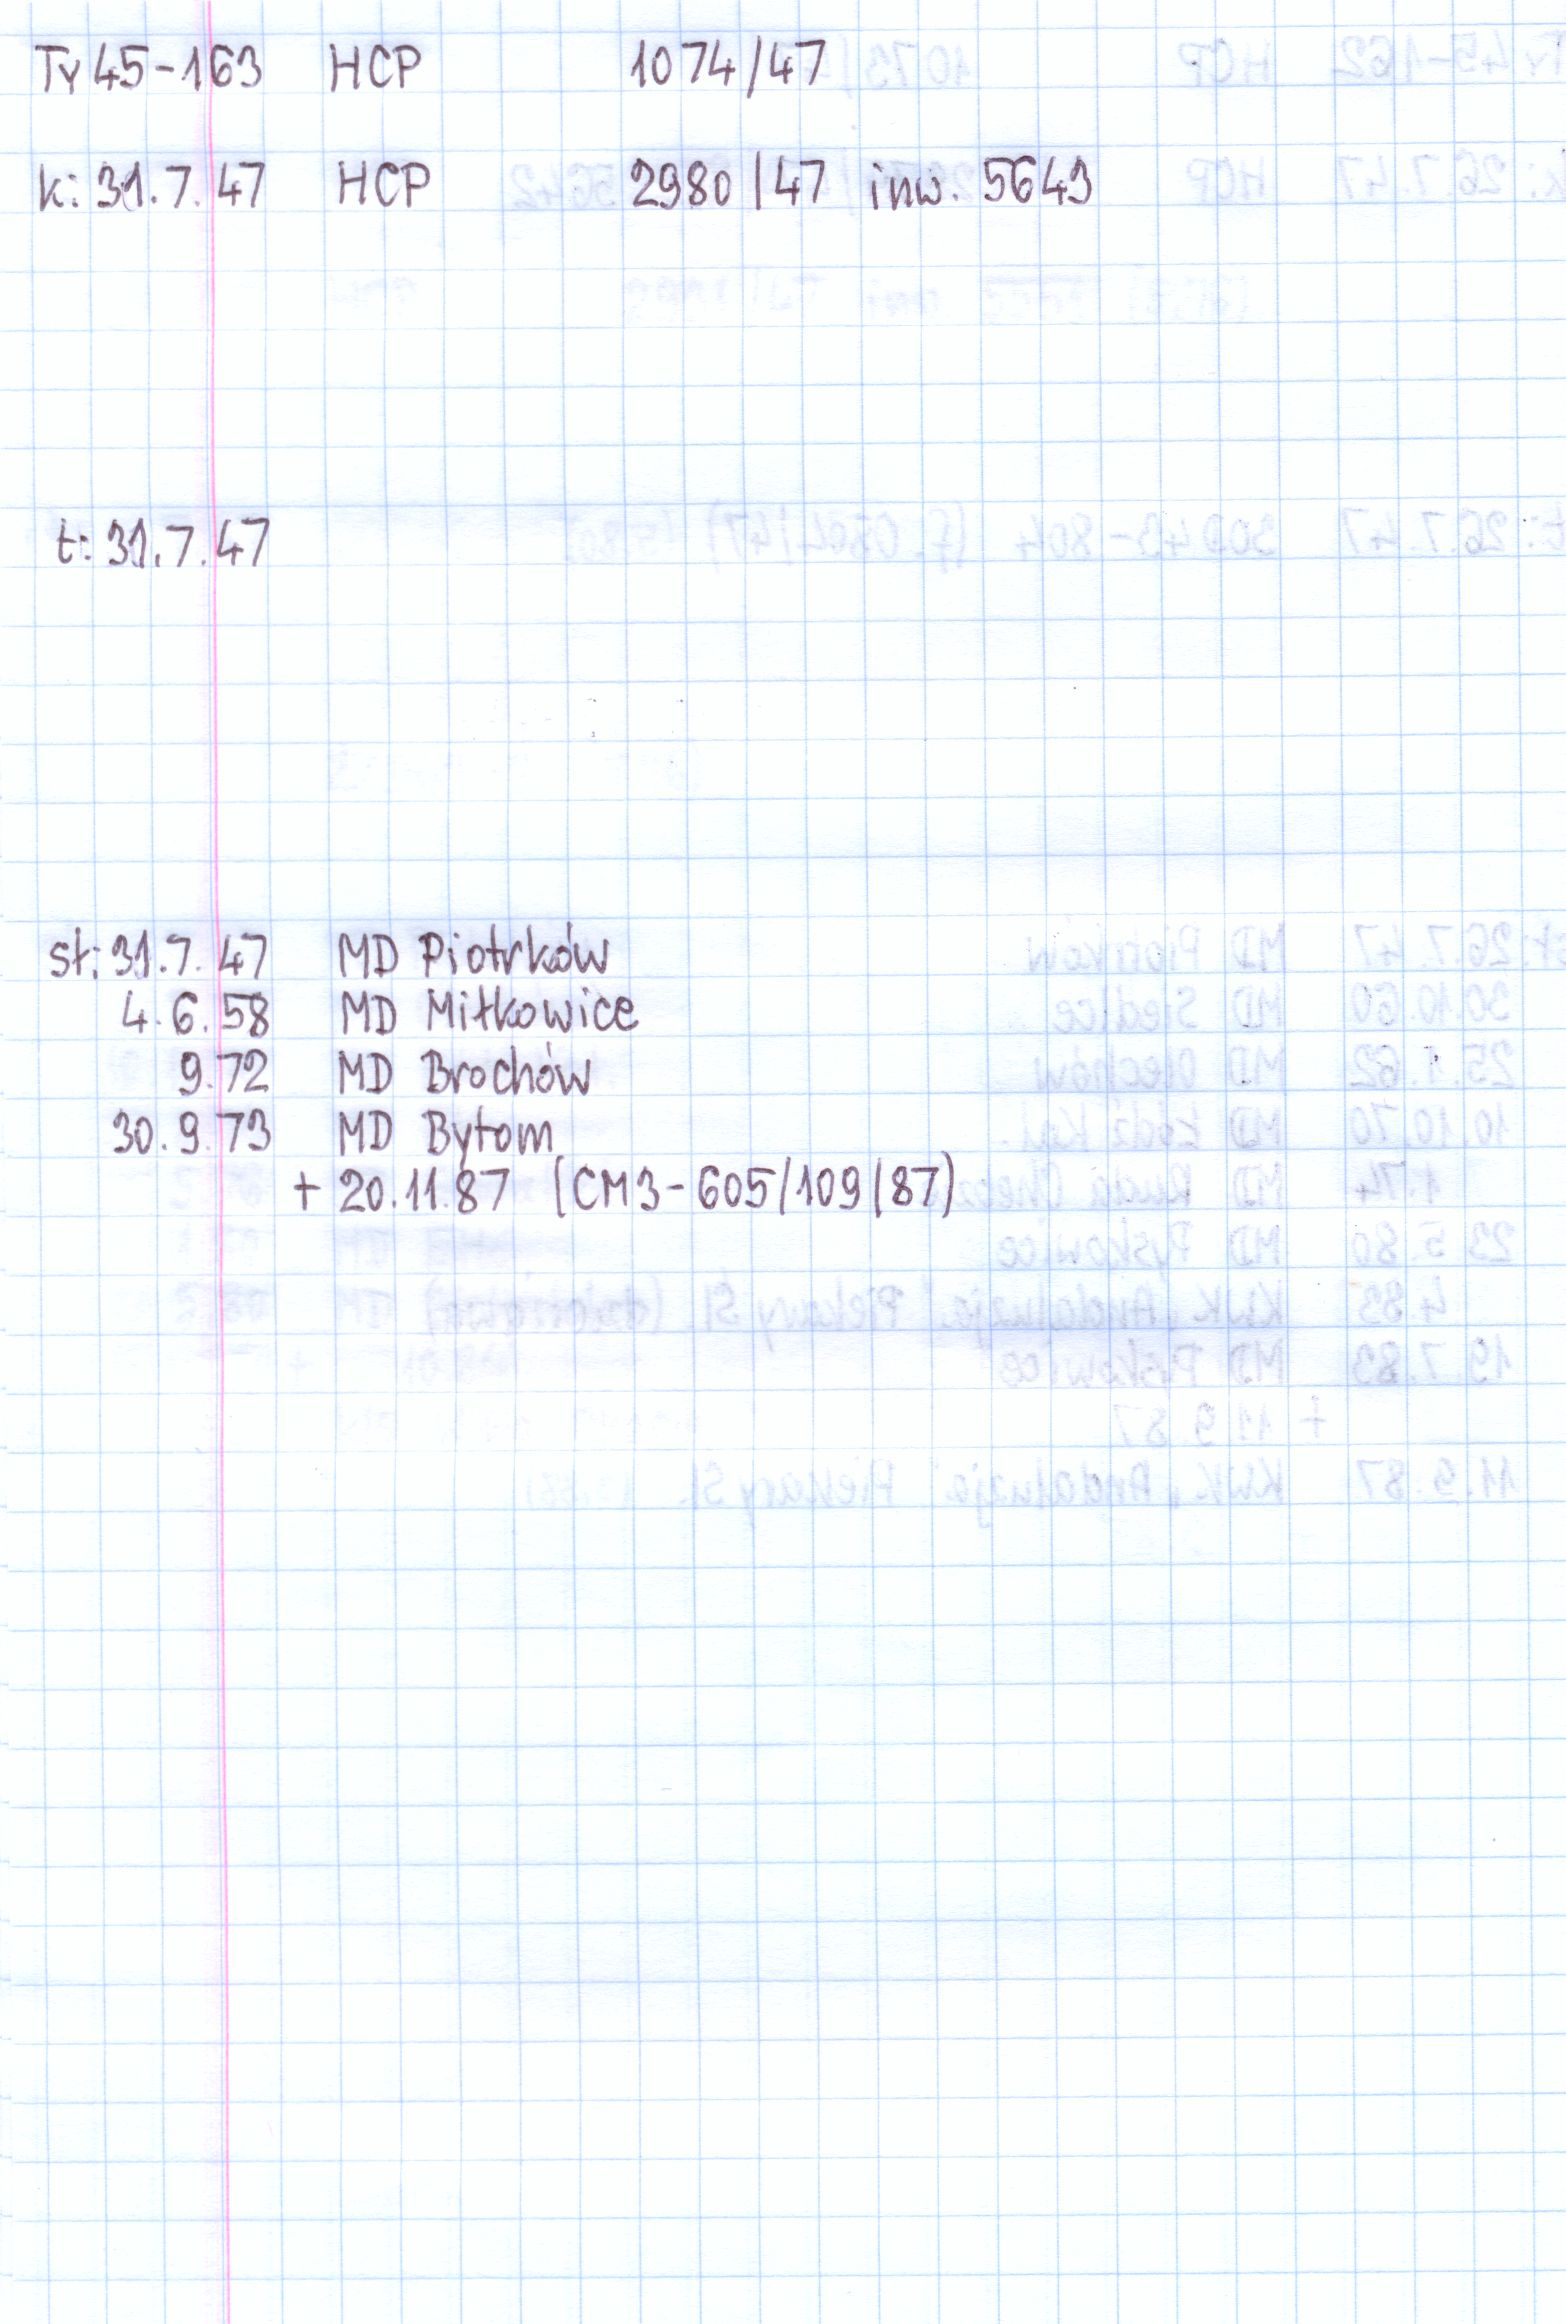 Ty45-163 HCP 1074/47
k: 31.7.47 HCP 2980/47 inw. 5643
t: 31.7.47
st: 31.7.47 MD Piotrków
4.6.58 MD Miłkowice
9.72 MD Brochów
30.9.73 MD Bytom
+ 20.11.87 (CM3-605/109/87)